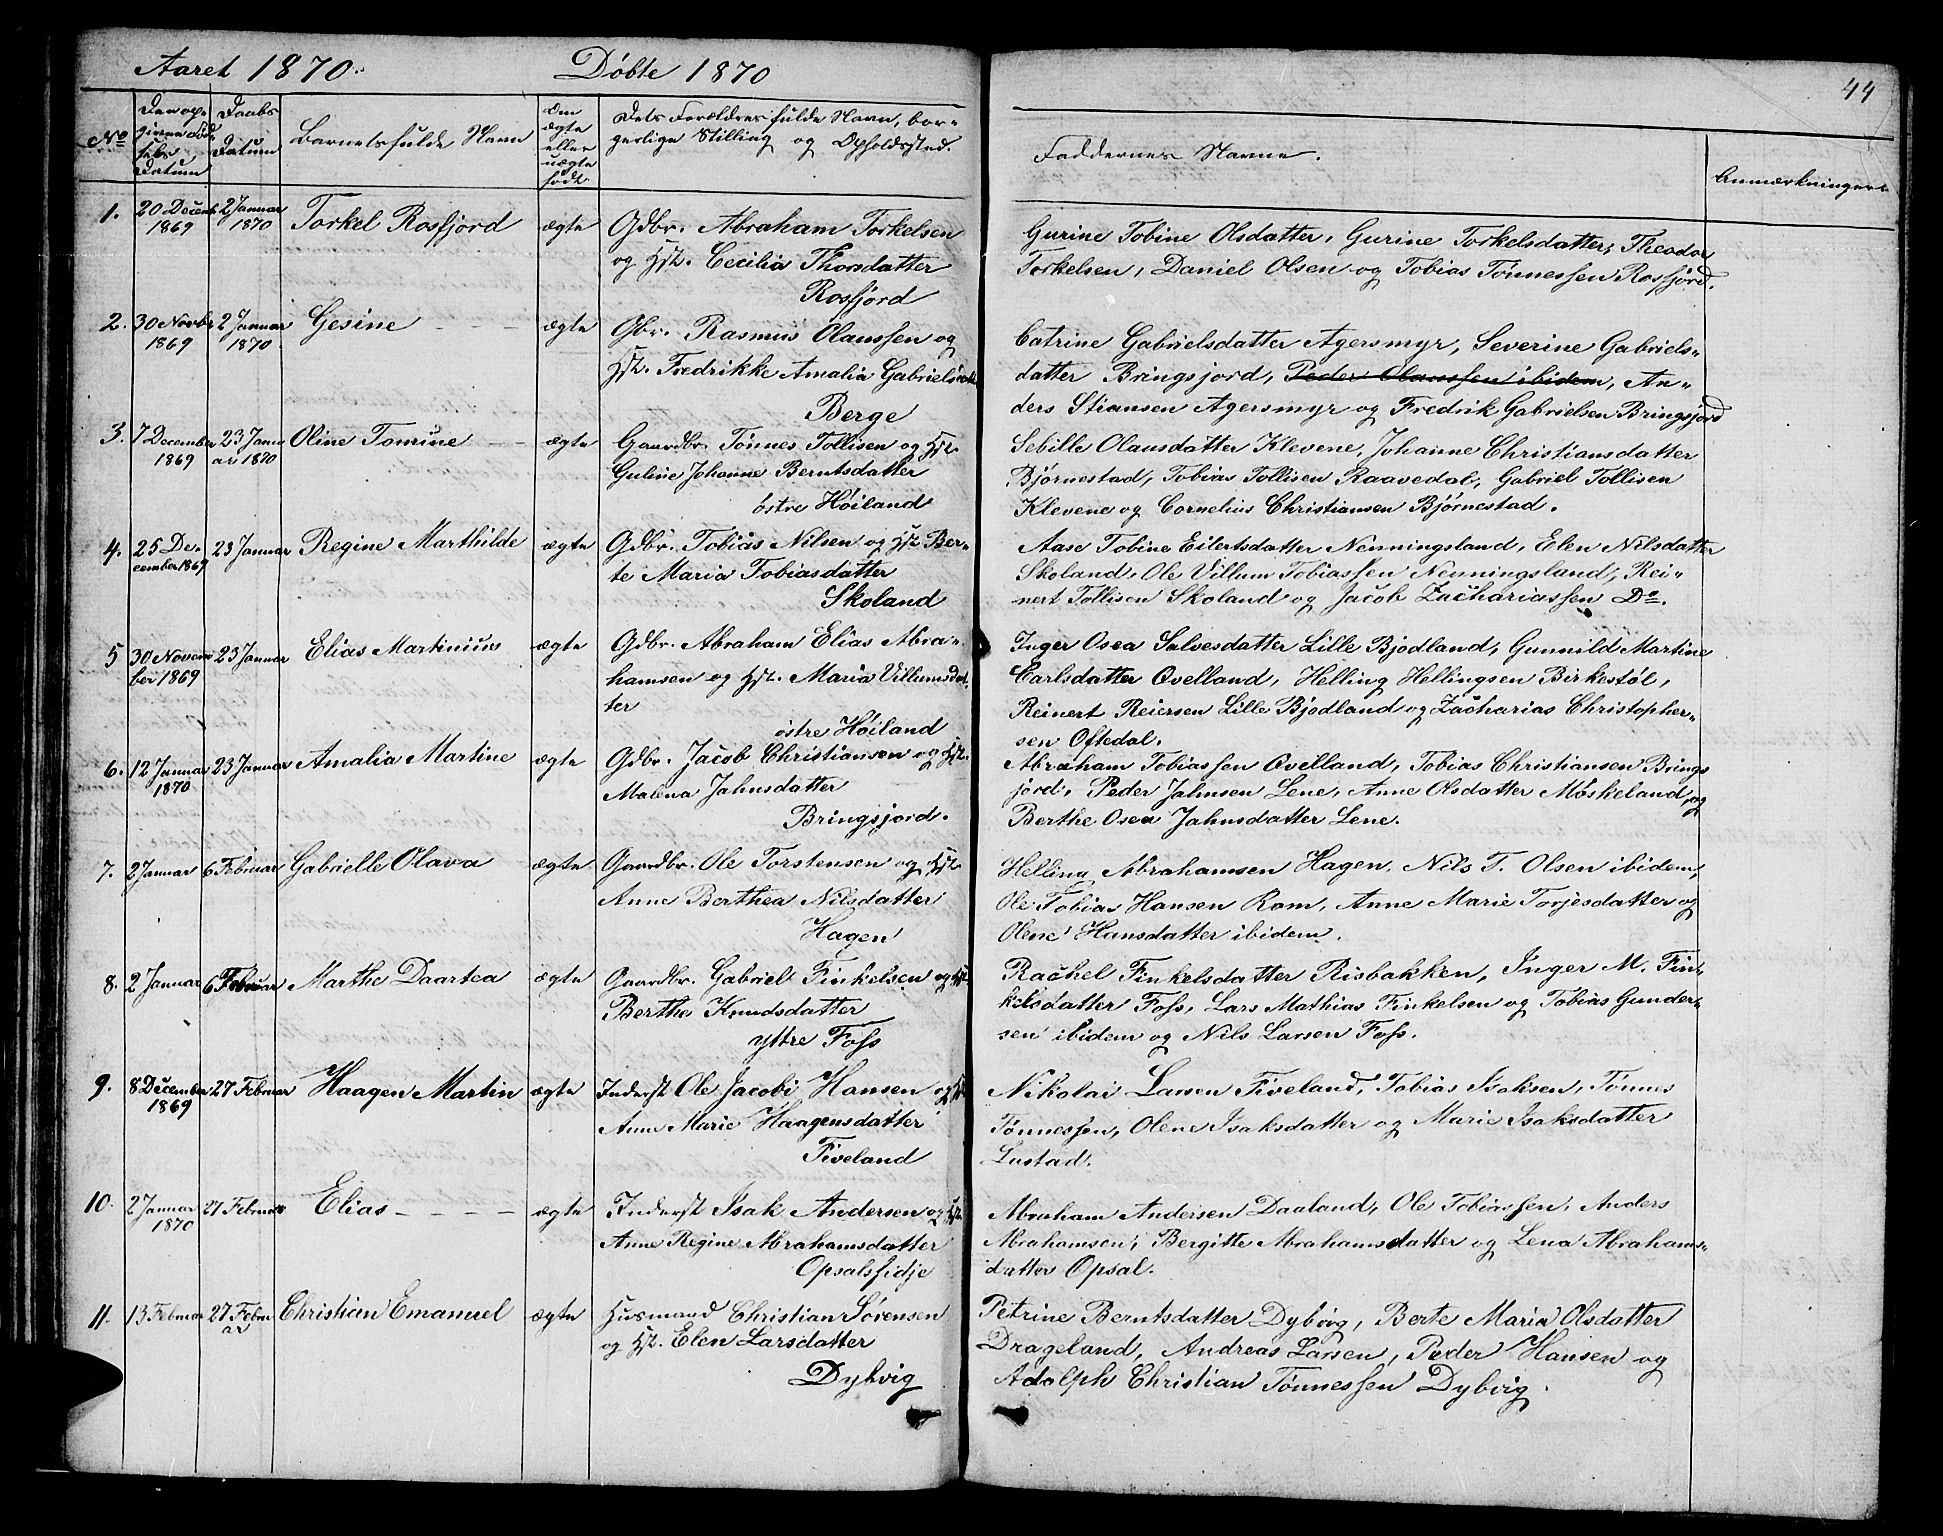 Aaret 1870. Døbte 1870
44
No
Den op-
givne Fød-
sels
Datum
Daabs
Datum
Barnets fulde Navn
Om
ægte
eller
uægte
født.
Dets Forældres fulde Navn, bor-
gerlige Stilling og Opholdssted.
Faddernes Navne.
Anmærkninger.
1. 20 Decemb 1869 2 Januar 1870 Torkel Rosfjord ægte
Gdbr. Abraham Torkelsen
og Hst. Cecilia Thorsdatter
Rosfjord
Gurine Tobine Olsdatter, Gurine Torkelsdatter, Theodor
Torkelsen, Daniel Olsen og Tobias Tønnessen Rosfjord.
2. 30 Novbr 1869 2 Januar 1870. Gesine - - - ægte
Gbr. Rasmus Olaussen og
Hst. Fredrikke Amalia Gabrielsdatter
Berge
Catrine Gabrielsdatter Agersmyr, Severine Gabriels-
datter Bringsjord, Peder Olaussen ibidem, An-
ders Stiansen Agersmyr og Fredrik Gabrielsen Bringsjord
3. 7 December 1869 23 Janu ar 1870 Oline Tomine - - ægte
Gaardbr. Tønnes Tollisen og Hst.
Guline Johanne Berntsdatter
østre Høiland
Sebille Olausdatter Klevene, Johanne Christiansdatter
Bjørnestad, Tobias Tollisen Raavedal, Gabriel Tollisen
Klevene og Cornelius Christiansen Bjørnestad.
4. 25 De- cember 1869 23 Januar Regine Marthilde ægte
Gdbr. Tobias Nilsen og Hst. Ber-
te Maria Tobiasdatter
Skoland
Aase Tobine Eilertsdatter Nenningsland, Elen Nilsdatter
Skoland, Ole Villum Tobiassen Nenningsland, Rei-
nert Tollisen Skoland og Jacob Zachariassen Do.
5 30 Novem ber 1869 23 Januar Elias Martinius ægte
Gdbr. Abraham Elias Abra-
hamsen og Hst. Maria Villumsdat-
ter
østre Høiland
Inger Osea Salvesdatter Lille Bjodland, Gunnild Martine
Carlsdatter Ovelland, Helling Hellingsen Birkestøl,
Reinert Reiersen Lille Bjodland og Zacharias Christopher-
sen Oftedal.
6. 12 Januar 1870 23 Januar Amalia Martine ægte
Gdbr. Jacob Christiansen og Hst.
Malena Jahnsdatter
Bringsjord.
Abraham Tobiassen Ovelland, Tobias Christiansen Brings
jord, Peder Jahnsen Lene, Anne Olsdatter Møskeland og
Berthe Osea Jahnsdatter Lene.
7. 2 Januar 6 Februar Gabrielle Olava ægte
Gaardbr. Ole Torstensen og Hst.
Anne Berthea Nilsdatter
Hagen
Helling Abrahamsen Hagen, Nils T. Olsen ibidem,
Ole Tobias Hansen Rom, Anne Marie Torjesdatter og
Olene Hansdatter ibidem.
8. 2 Januar 6 Februar Marthe Daartea ægte
Gaardbr. Gabriel Finkelsen og Hst.
Berthe Knudsdatter
yttre Foss
Rachel Finkelsdatter Risbakken, Inger M. Fin-
kelsdatter Foss, Lars Mathias Finkelsen og Tobias Gunder-
sen ibidem og Nils Larsen Foss.
9. 8 December 1869 27 Februar Haagen Martin ægte
Inderst Ole Jacobi Hansen og Hst
Anne Marie Haagensdatter
Fiveland
Nikolai Larsen Fiveland, Tobias Isaksen, Tønnes
Tønnessen, Olene Isaksdatter og Marie Isaksdatter
Lustad.
10. 2 Januar 1870 27 Februar Elias - - - - ægte
Inderst Isak Andersen og Hst.
Anne Regine Abrahamsdatter
Opsalsfidje
Abraham Andersen Daaland, Ole Tobiassen, Anders
Abrahamsen, Bergitte Abrahamsdatter og Lena Abrahams-
datter Opsal.
11. 13 Februar 27 Febru ar Christian Emanuel ægte
Husmand Christian Sørensen
og Hst. Elen Larsdatter
Dybvig
Petrine Berntsdatter Dybvig, Berte Maria Olsdatter
Drageland, Andreas Larsen, Peder Hansen og
Adolph Christian Tønnessen Dybvig.